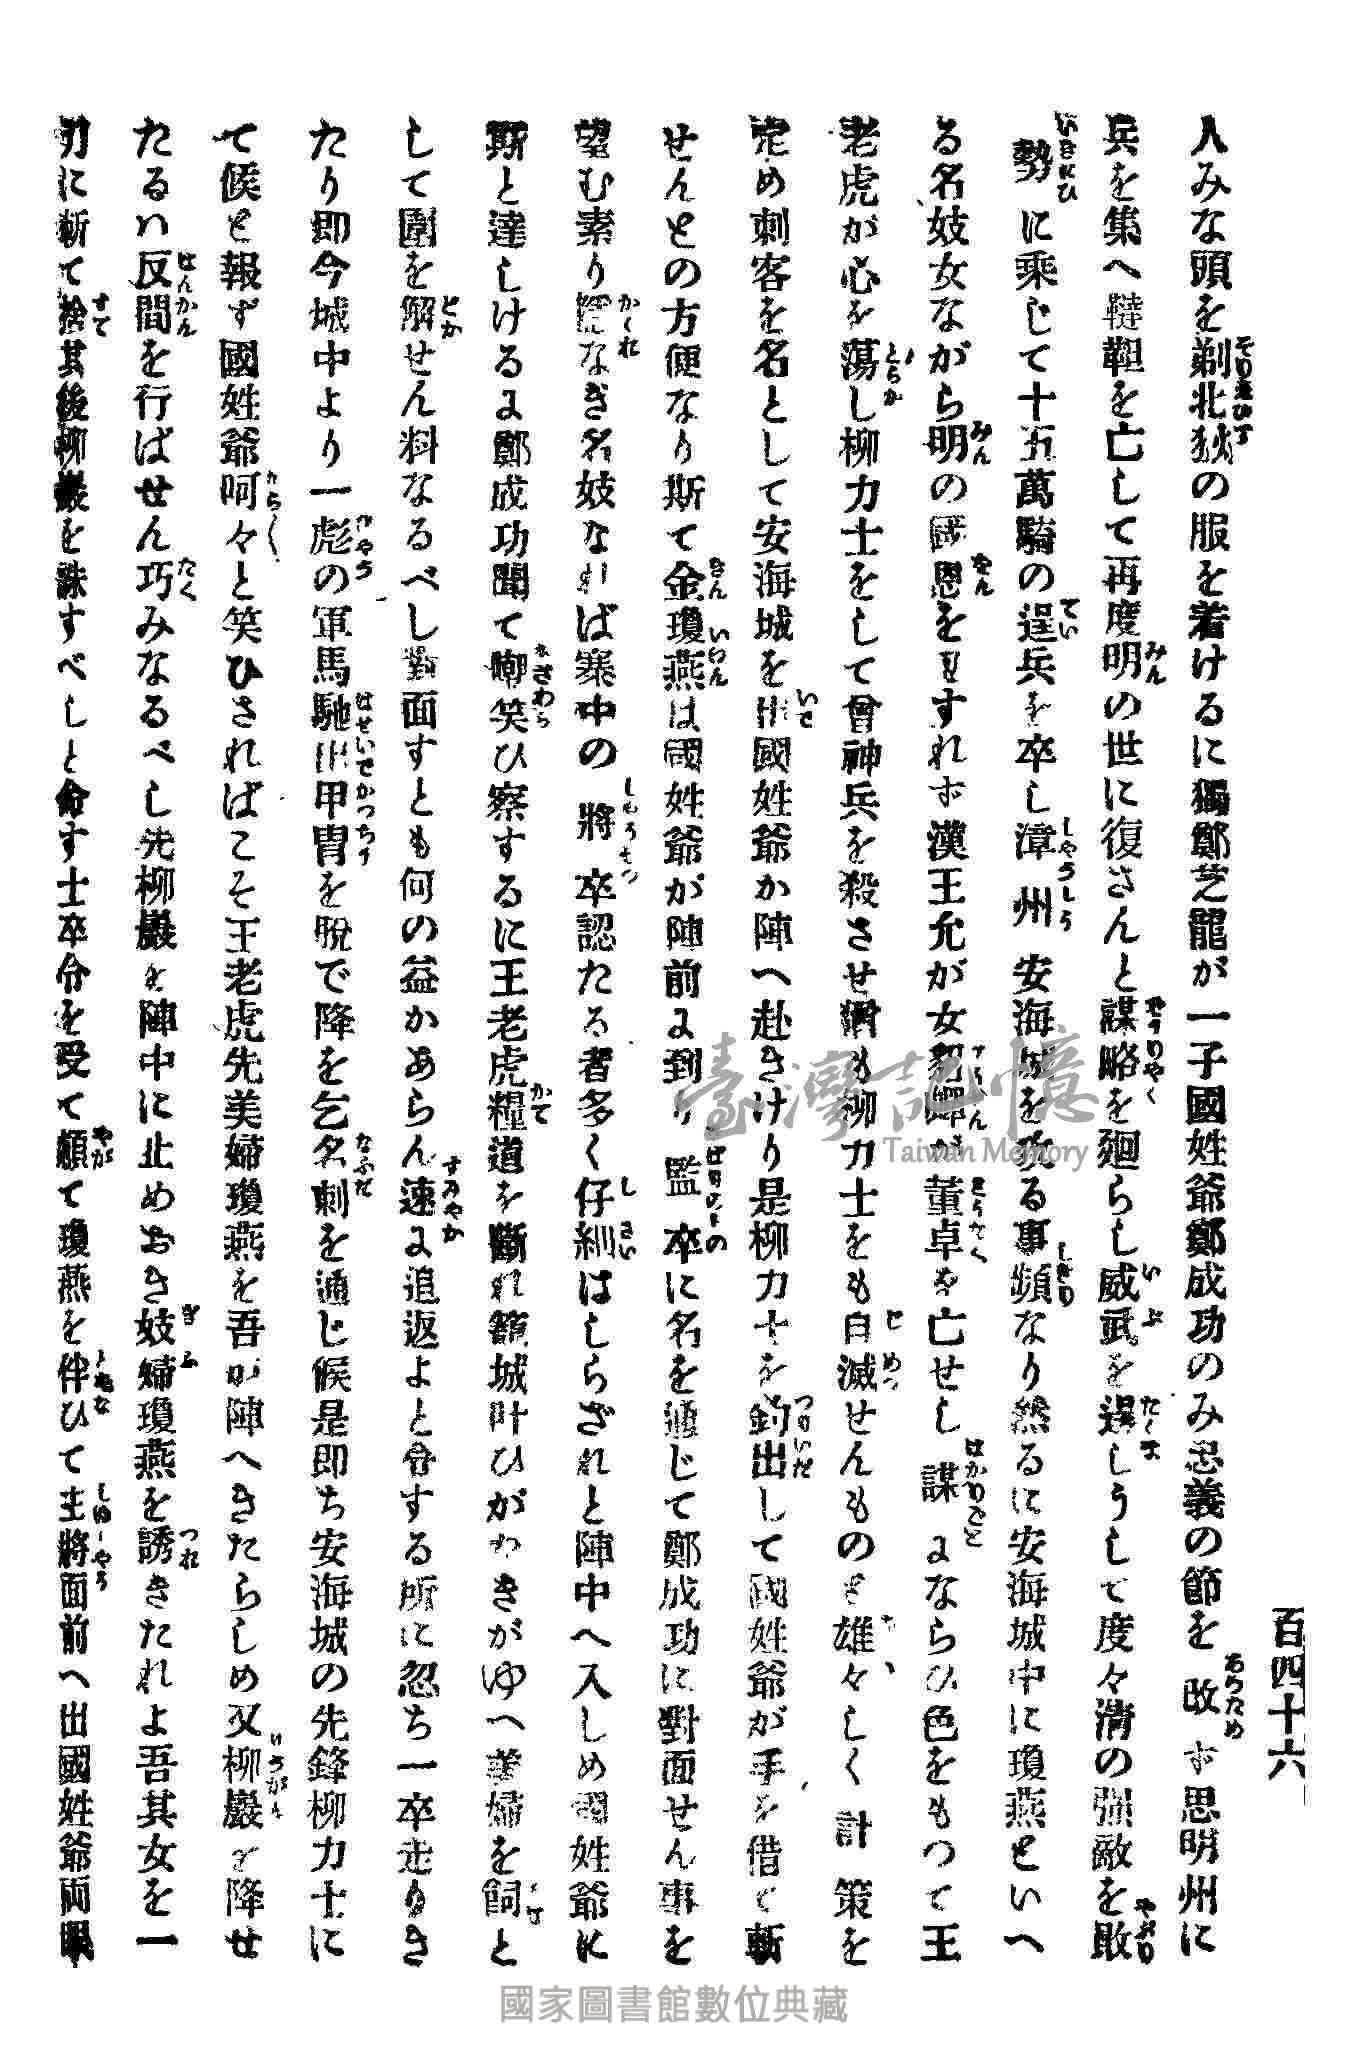 百四十六
人みな頭を剃北狄の服を着けるに獨鄭芝龍が一子國姓爺鄭成功のみ忠義の節を改ず思明州に
兵を集へ韃靼を亡して再度明の世に復さんと謀略を廻らし威武を逞しうして度々淸の强敵を敗
勢に乘じて十五萬騎の逞兵を卒し漳州安海城を攻る事頻なり然るに安海城中に瓊燕といへ
る名妓女ながら明の國恩をわすれず漢王允が女貂蟬が董卓を亡せし謀にならひ色をもつて王
老虎が心を蕩し柳力士をして曾神兵を殺させ猶も柳力士をも自滅せんものぞ雄々しく計策を
定め刺客を名として安海城を出國姓爺か陣へ赴きけり是柳力士を釣出して國姓爺が手を借て斬
せんとの方便なり斯て金瓊燕は國姓爺が陣前に到り監卒に名を通じて鄭成功に對面せん事を
望む素り隱なき名妓なれば寨中の將卒認たる者多く仔細はしらざれと陣中へ入しめ國姓爺に
斯と達しけるに鄭成功聞て嘲笑ひ察するに王老虎糧道を斷れ籠城叶ひがたきがゆへ美婦を餌と
して圍を解せん料なるべし對面すとも何の益かあらん速に追返よと會する所に忽ち一卒走りき
たり即今城中より一彪の軍馬馳出甲冑を脫で降を乞名刺を通じ候是即ち安海城の先鋒柳力士に
て候と報ず國姓爺呵々と笑ひさればこそ王老虎先美婦瓊燕を吾が陣へきたらしめ又柳巖を降せ
たるハ反間を行ばせん巧みなるべし先柳巖を陣中に止めおき妓婦瓊燕を誘きたれよ吾其女を一
刀に斬て捨其後柳巖を誅すべしと命す士卒令を受て頓て瓊燕を伴ひて主將面前へ出國姓爺両眼
臺灣記憶
Taiwan Memory
國家圖書館數位典藏